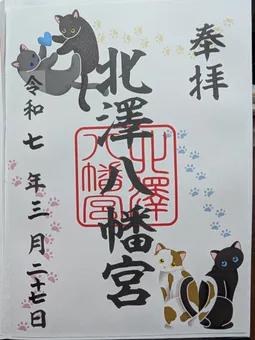 奉拝
北澤八幡宮
北澤
八幡宮
令和七年三月二十七日